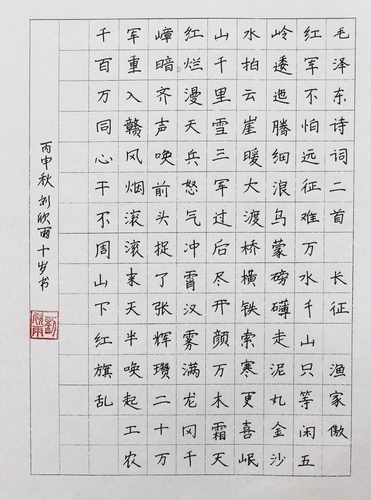 毛泽东诗词二首 长征 渔家傲
红军不怕远征难万水千山只等闲五
岭逶迤腾细浪乌蒙磅礴走泥丸金沙
水拍云崖暖大渡桥横铁索寒更喜岷
山千里雪三军过后尽开颜万木霜天
红烂漫天兵怒气冲霄汉雾满龙冈千
嶂暗齐声唤前头捉了张辉瓒二十万
军重入赣风烟滚滚来天半唤起工农
千百万同心干不周山下红旗乱
丙申秋刘欣雨十岁书